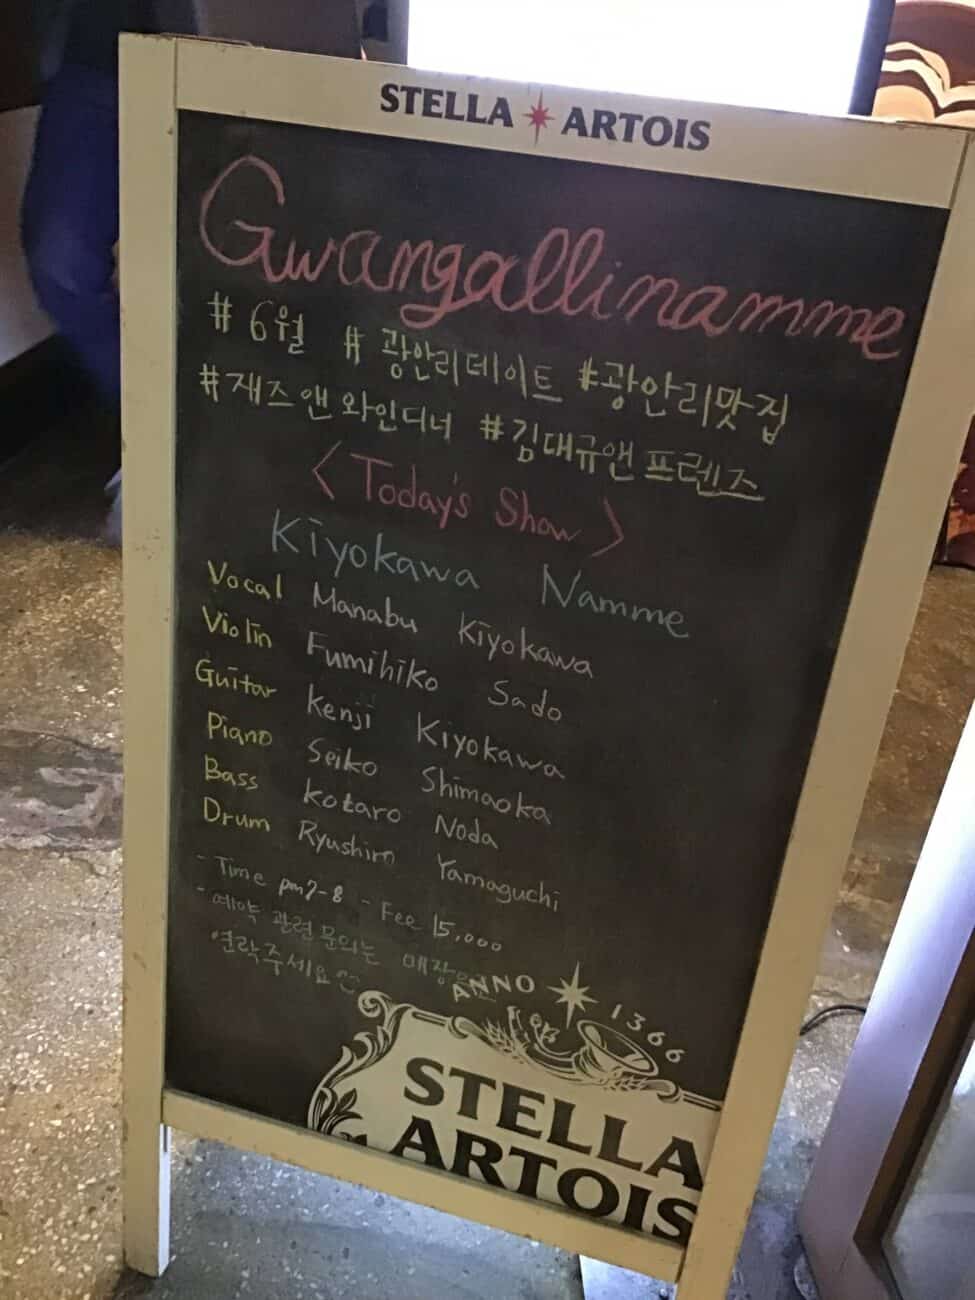 STELLA ARTOIS
Gwangallinamme
# 6월 # 광안리데이트 #광안리맛집
#재즈앤와인디너 #김대규앤프렌즈
<Today's Show>
Kiyokawa Namme
Vocal Manabu Kiyokawa
Violin Fumihiko Sado
Guitar Kenji Kiyokawa
Piano Seiko Shimaoka
Bass Kotaro Noda
Drum Ryushiro Yamaguchi
- Time pm7-8 - Fee 15,000
- 예약 관련 문의는 매장으로
연락주세요♡
ANNO 1366
STELLA
ARTOIS